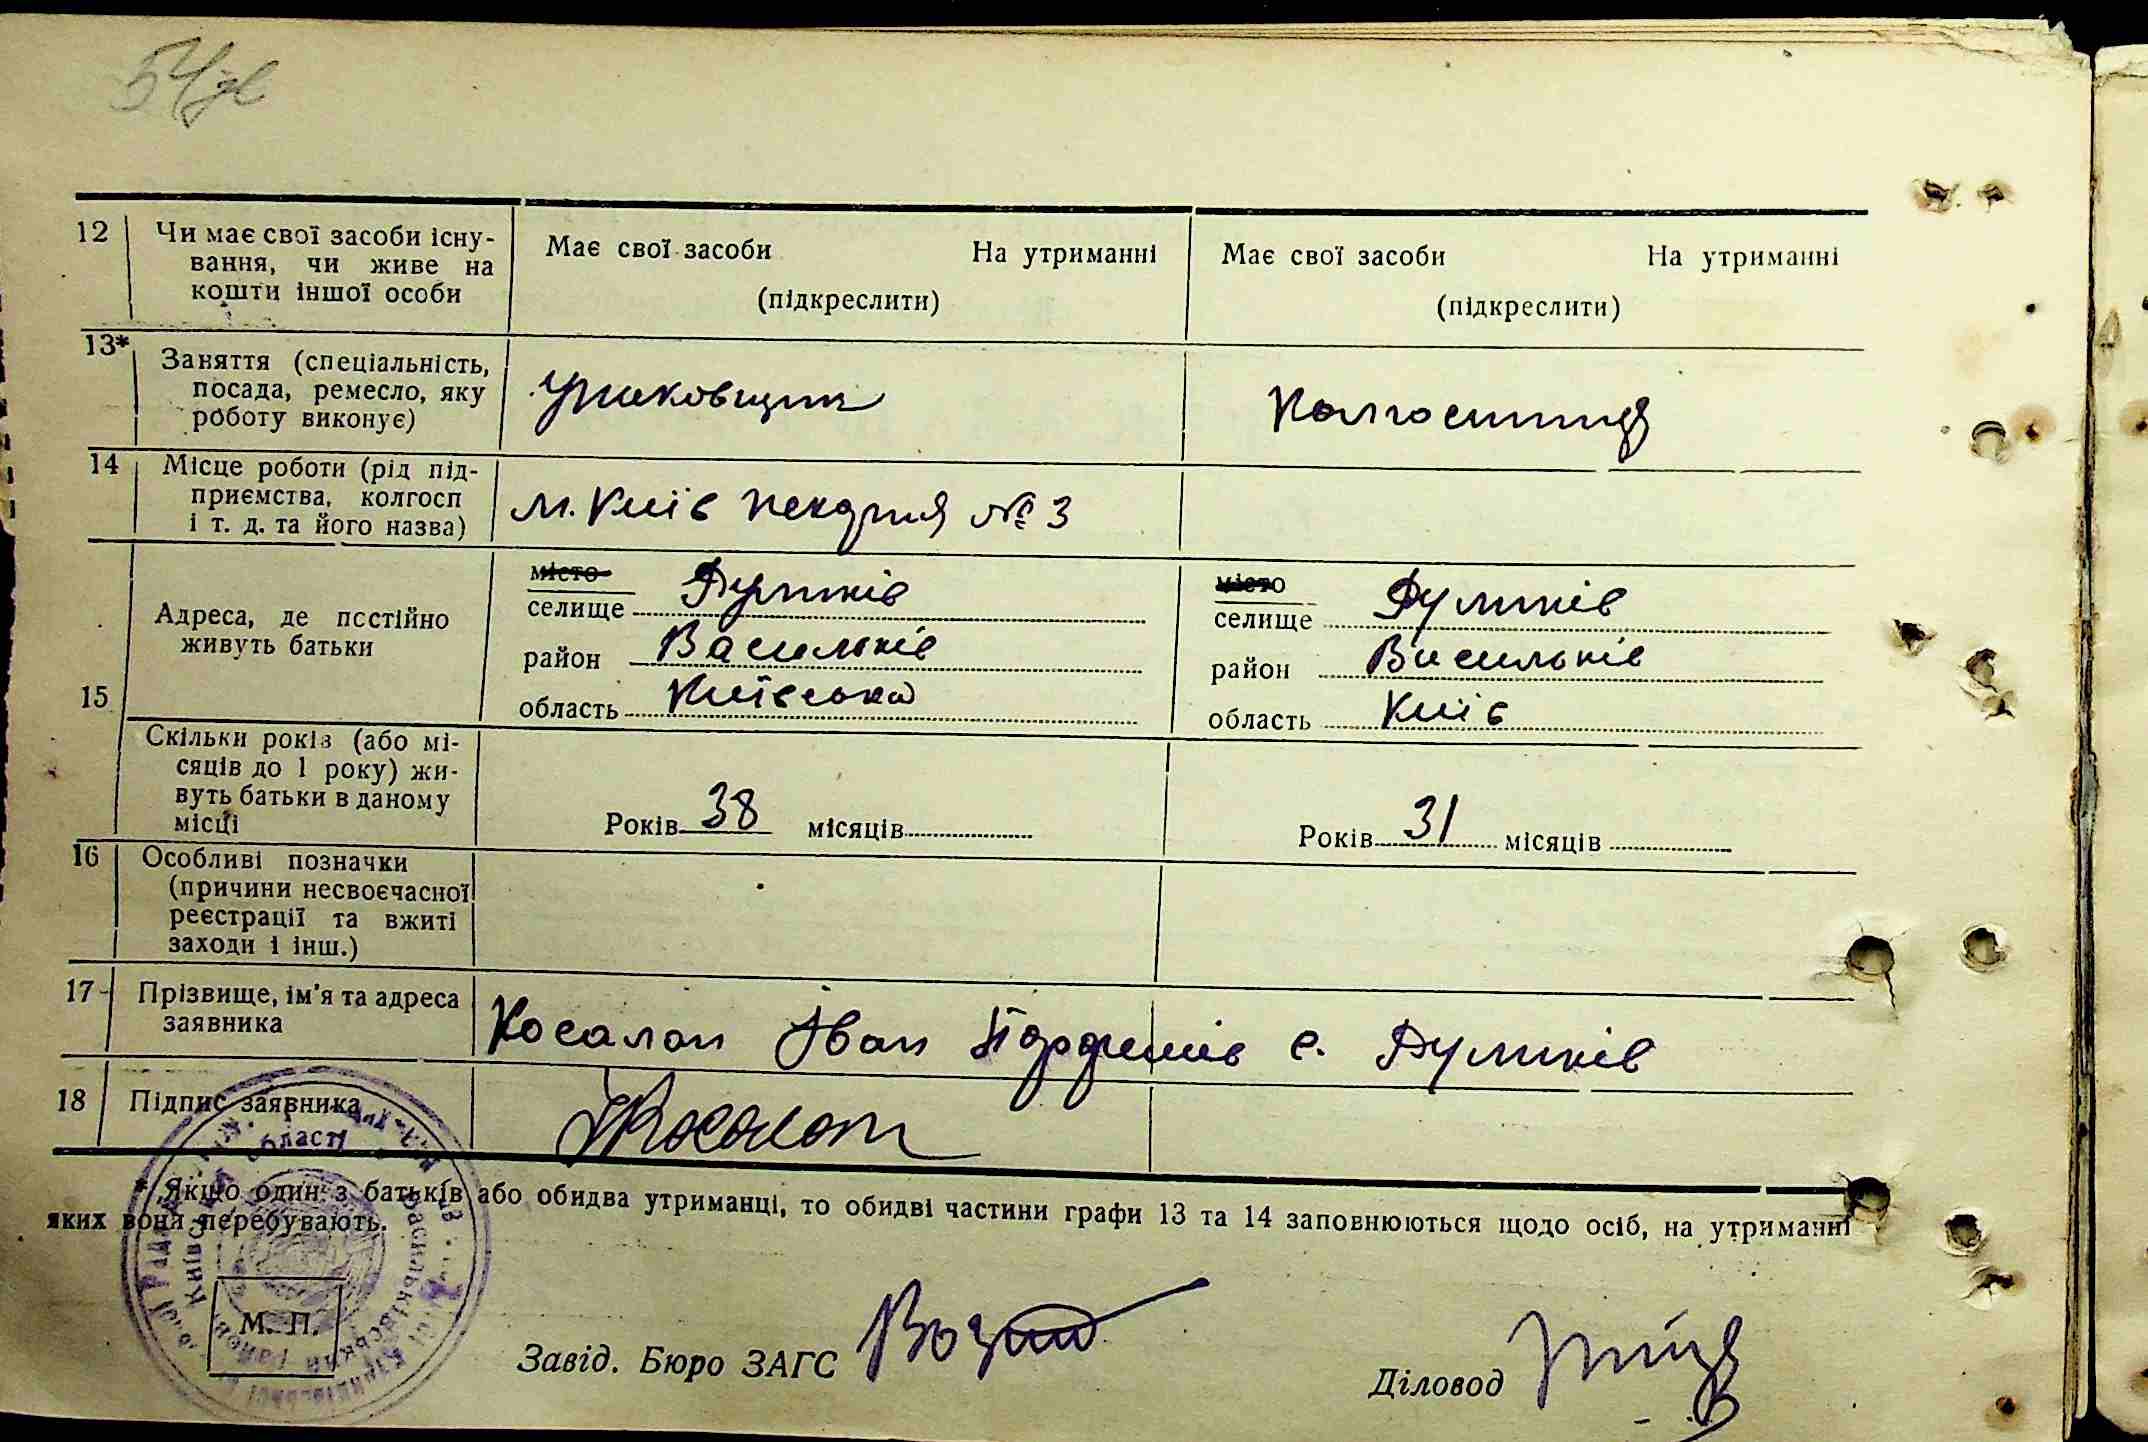 54зв
12 Чи має свої засоби існу- Має свої засоби На утриманні Має свої засоби На утриманні
вання, чи живе на
кошти іншої особи (підкреслити) (підкреслити)
13* Заняття (спеціальність,
посада, ремесло, яку упаковщик Колгоспниця
роботу виконує)
14 Місце роботи (рід під-
приємства, колгосп м. Київ пекарня № 3
і т. д. та його назва)
15 Адреса, де постійно
живуть батьки
місто
селище Дуліпків
район Васильків
область Київська
місто
селище Дуліпків
район Васильків
область Київ
Скільки років (або мі-
сяців до 1 року) жи-
вуть батьки в даному
місці
Років 38 місяців Років 31 місяців
16 Особливі позначки
(причини несвоєчасної
реєстрації та вжиті
заходи і інш.)
17 Прізвище, ім'я та адреса
заявника
Косалап Іван с.
18 Підпис заявника
* Якщо один з батьків або обидва утриманці, то обидві частини графи 13 та 14 заповнюються щодо осіб, на утриманні
яких вони перебувають.
М. П.
Завід. Бюро ЗАГС
Діловод
області
Васильківський район
Київської